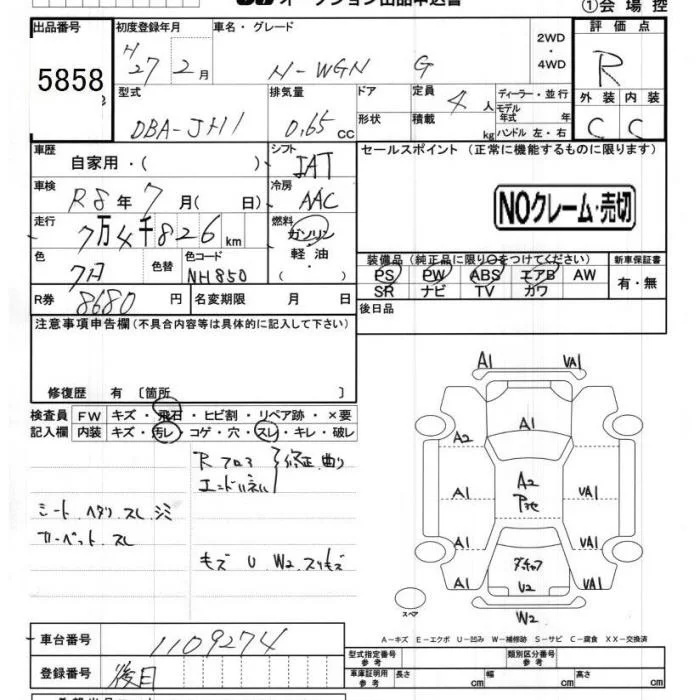 オークション出品申込書 ①会場控
出品番号 初度登録年月 車名・グレード 2WD・4WD 評価点
5858 H27年2月 N-WGN G R
型式 排気量 ドア 定員 ディーラー・並行 外装 内装
DBA-JH1 0.65 cc 形状 積載 4人 kg モデル年式 年 ハンドル 左・右 C C
車歴 自家用・( ) シフト IAT セールスポイント (正常に機能するものに限ります)
車検 R8年7月( 日) 冷房 AAC
NOクレーム・売切
走行 7万4千826km 燃料 ガソリン・軽油・( )
色 色替 色コード NH850
装備品 (純正品に限り○をつけてください) 新車保証書
PS PW ABS エアB AW 有・無
SR ナビ TV カワ
R券 8680円 名変期限 月 日 後日品
注意事項申告欄 (不具合内容等は具体的に記入して下さい)
修復歴 有 〔箇所 〕
検査員 FW キズ・飛石・ヒビ割・リペア跡・×要
記入欄 内装 キズ・汚レ・コゲ・穴・スレ・キレ・破レ
R フロア
エンドパネル 修正、曲り
シート、ヘタリ、スレ、シミ
カーペット、スレ
キズ U W2 スリキズ
A1 VA1
A1
A2
A2
A1 VA1
A1 VA1
A1 U2 VA1
スペア W2
A-キズ E-エクボ U-凹み W-補修跡 S-サビ C-腐食 XX-交換済
車台番号 1109274
型式指定番号 参考 類別区分番号 参考
登録番号 後日
車庫証明用 参考 長さ cm 幅 cm 高さ cm